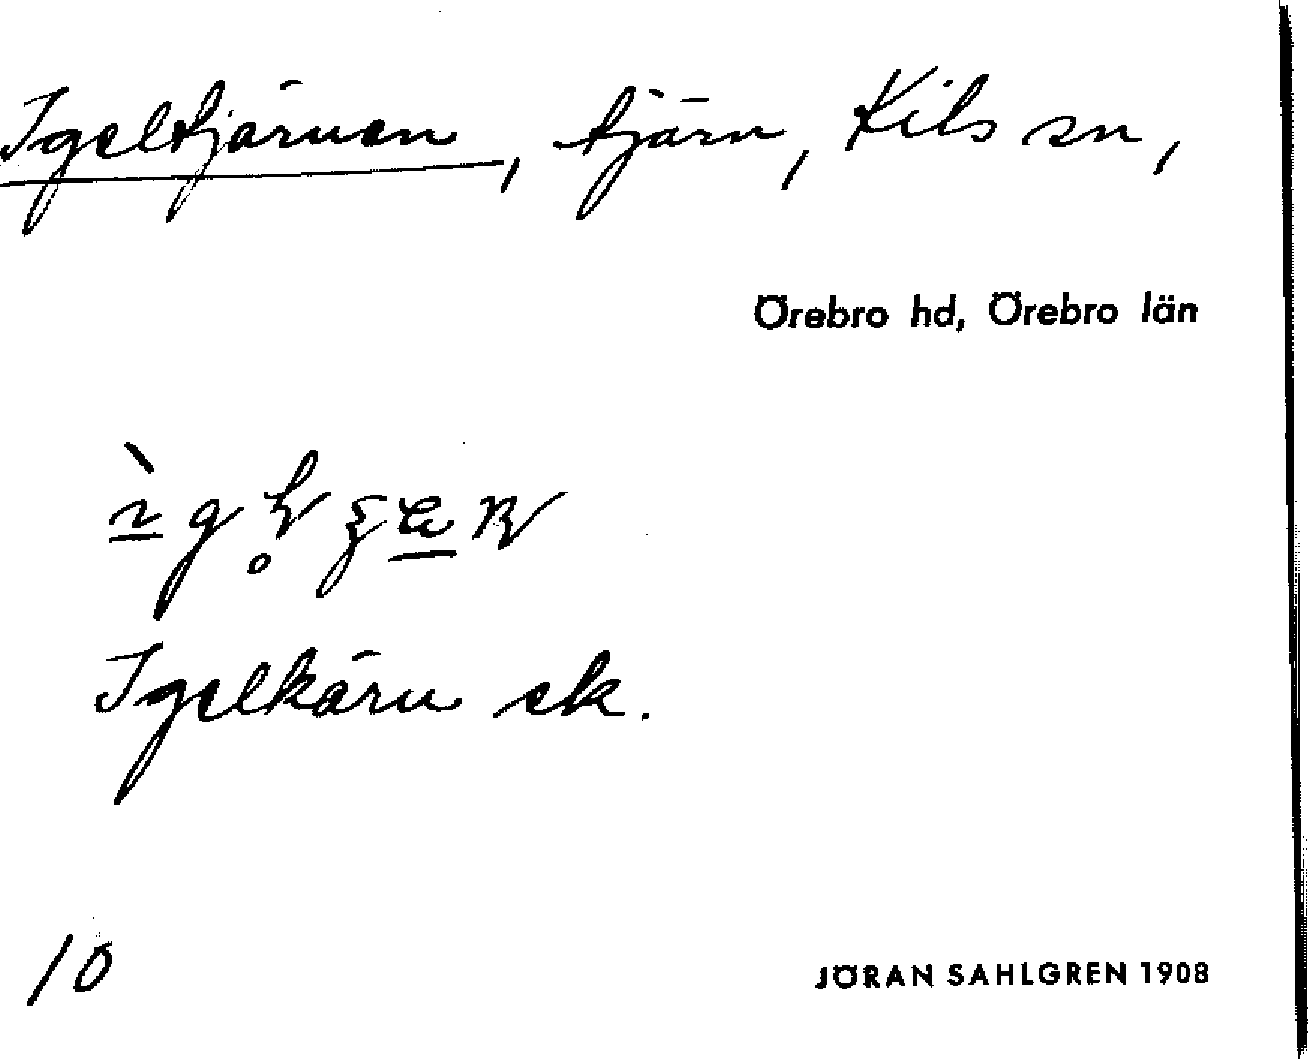 Igeltjärnen, tjärn, Kils sn,
Örebro hd, Örebro län
Igelkärn ek.
10
JÖRAN SAHLGREN 1908